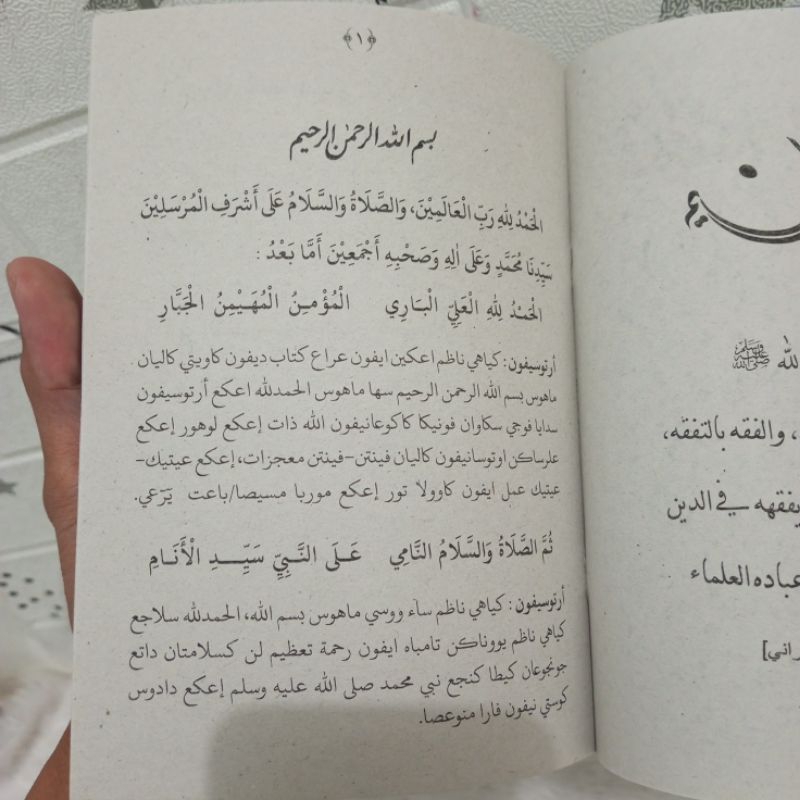 ﴿١﴾
بسم الله الرحمن الرحيم
الْحَمْدُ لِلّٰهِ رَبِّ الْعَالَمِيْنَ، وَالصَّلَاةُ وَالسَّلَامُ عَلَى أَشْرَفِ الْمُرْسَلِيْنَ
سَيِّدِنَا مُحَمَّدٍ وَعَلَى اٰلِهِ وَصَحْبِهِ أَجْمَعِيْنَ أَمَّا بَعْدُ :
الْحَمْدُ لِلّٰهِ الْعَلِيِّ الْبَارِي الْمُؤْمِنُ الْمُهَيْمِنُ الْجَبَّارِ
أرتوسيفون : كياهي ناظم اعكين ايفون عراع كتاب ديفون كاويتي كاليان
ماهوس بسم الله الرحمن الرحيم سها ماهوس الحمدلله اعكع أرتوسيفون
سدايا فوجي سكاوان فونيكا كاكوعانيفون الله ذات إعكع لوهور إعكع
علرساكن اوتوسانيفون كاليان فينتن-فينتن معجزات، إعكع عيتيك-
عيتيك عمل ايفون كاوولا تور إعكع موربا مسيصا/باعت يَرَعي.
ثُمَّ الصَّلَاةُ وَالسَّلَامُ النَّامِي عَلَى النَّبِيِّ سَيِّدِ الْأَنَامِ
أرتوسيفون : كياهي ناظم ساء ووسي ماهوس بسم الله، الحمدلله سلاجع
كياهي ناظم يووناكن تامباه ايفون رحمة تعظيم لن كسلامتان داتع
جونجوعان كيطا كنجع نبي محمد صلى الله عليه وسلم إعكع دادوس
كوستي نيفون فارا منوعصا.
الله ﷺ
، والفقه بالتفقه،
يفقهه في الدين
عباده العلماء
راني]